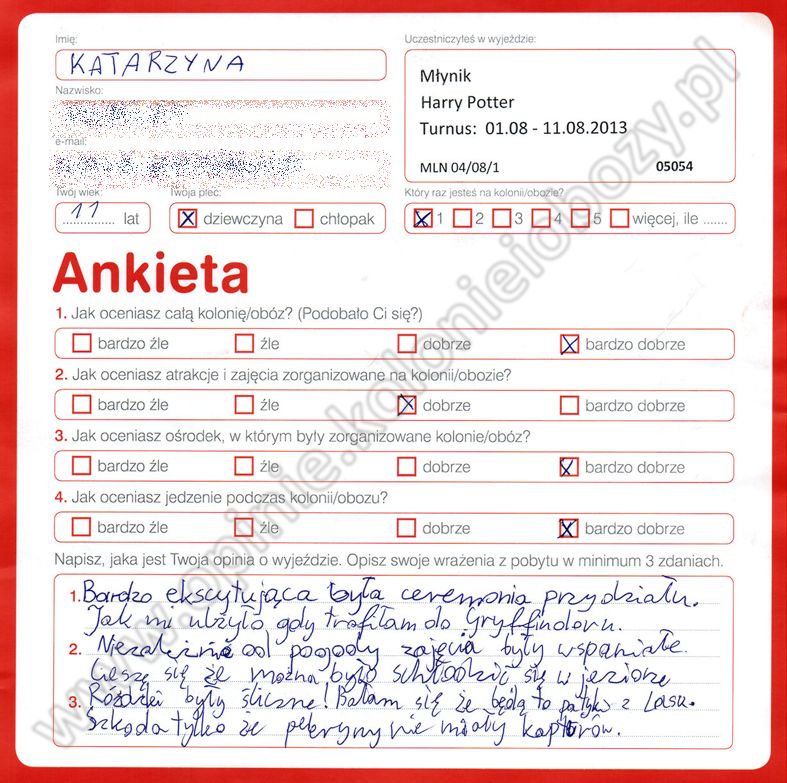 Imię:
KATARZYNA
Nazwisko:
e-mail:
Twój wiek:
11 lat
Twoja płeć:
dziewczyna chłopak
Uczestniczyłeś w wyjeździe:
Młynik
Harry Potter
Turnus: 01.08 - 11.08.2013
MLN 04/08/1 05054
Który raz jesteś na kolonii/obozie?
1 2 3 4 5 więcej, ile .......
Ankieta
1. Jak oceniasz całą kolonię/obóz? (Podobało Ci się?)
bardzo źle źle dobrze bardzo dobrze
2. Jak oceniasz atrakcje i zajęcia zorganizowane na kolonii/obozie?
bardzo źle źle dobrze bardzo dobrze
3. Jak oceniasz ośrodek, w którym były zorganizowane kolonie/obóz?
bardzo źle źle dobrze bardzo dobrze
4. Jak oceniasz jedzenie podczas kolonii/obozu?
bardzo źle źle dobrze bardzo dobrze
Napisz, jaka jest Twoja opinia o wyjeździe. Opisz swoje wrażenia z pobytu w minimum 3 zdaniach.
1. Bardzo ekscytująca była ceremonia przydziału.
Jak mi ulżyło gdy trafiłam do Gryffindoru.
2. Niezależnie od pogody zajęcia były wspaniałe.
Cieszę się że można było schłodzić się w jeziorze
3. Różdżki były śliczne! Bałam się że będą to patyki z lasu.
Szkoda tylko że peleryny nie miały kapturów.
www.opinie.kolonieiobozy.pl